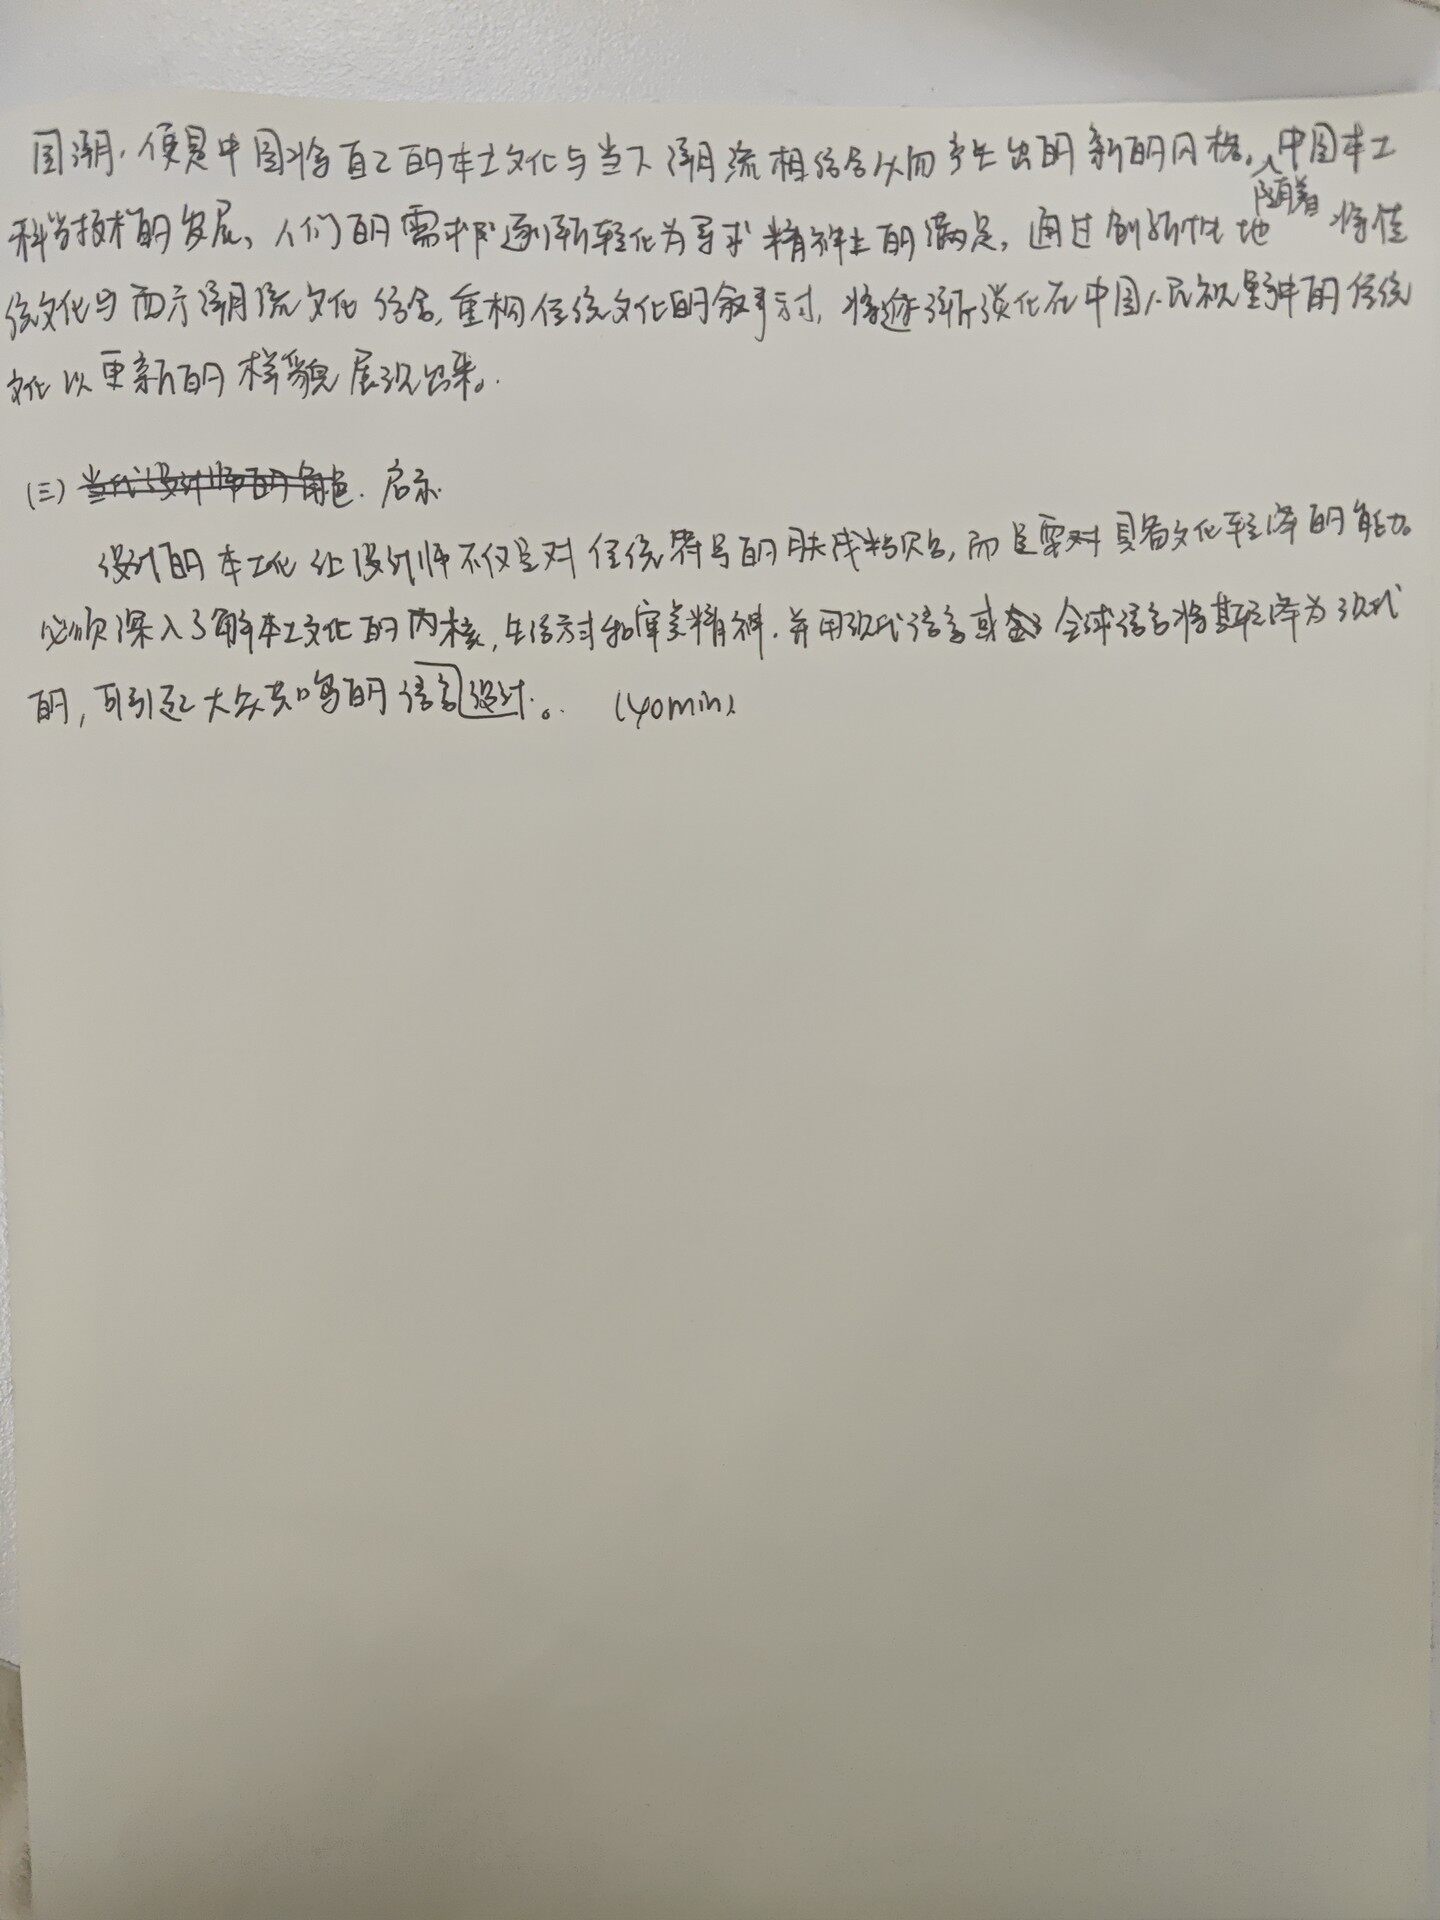 国潮，便是中国将自己的本土文化与当下潮流相结合从而产生出的新的风格。随着中国本土
科学技术的发展，人们的需求逐渐转化为寻求精神上的满足，通过创新性地将传
统文化与西方潮流文化结合，重构传统文化的叙事方式，将逐渐淡化在中国人民视野中的传统
文化以更新的样貌展现出来。
(三) 当代设计师的角色. 启示.
设计的本土化让设计师不仅是对传统符号的肤浅粘贴，而是需对具备文化转译的能力。
必须深入了解本土文化的内核，生活方式和审美精神，并用现代语言或全球语言将其转译为现代
的，可引起大众共鸣的语言设计。 (40min)